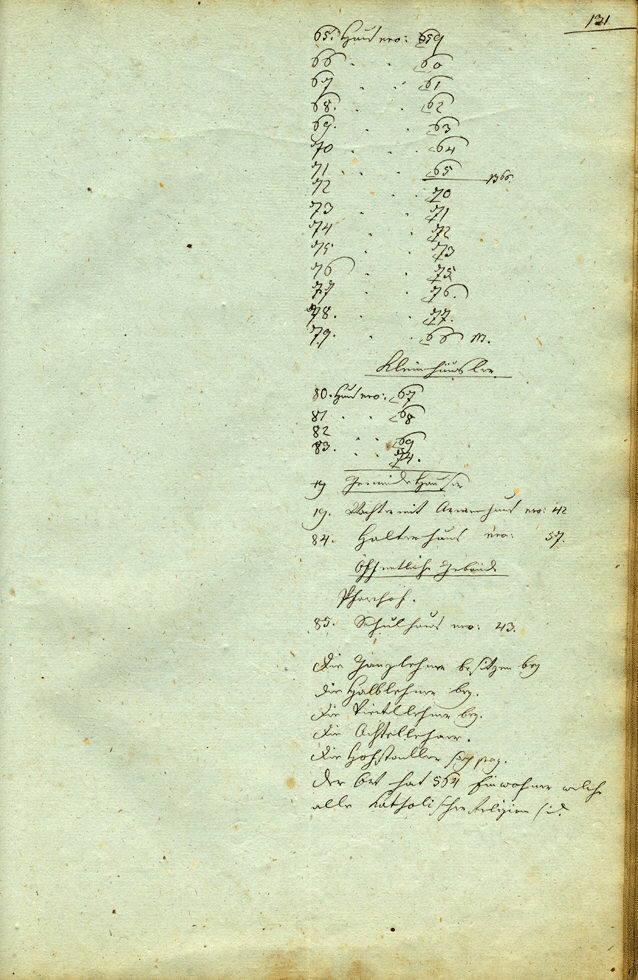 131
65. Haus nro: 59
66 . . 60
67 . . 61
68. . . 62
69. . . 63
70 . . 64
71 . . 65
1366.
72 . . 70
73 . . 71
74 . . 72
75 . . 73
76 . . 75
77 . . 76.
78. . . 77.
79. . . 66 m.
Kleinhäusler
80. Haus nro: 67
81 . . 68
82 . . 69
83. . . 74.
19 Gemeinde Häuser
19. Armenhaus nro: 42
84. Halterhaus nro: 57.
Öffentliche Gebäude
Pfarrhof.
85. Schulhaus nro: 43.
Die Ganzlehner besitzen bey
die Halblehner bey.
die Viertllehner bey.
die Achtellehner.
die Hofstadller
der Ort hat 564 Einwohner welche
alle katholischer Religion sind.